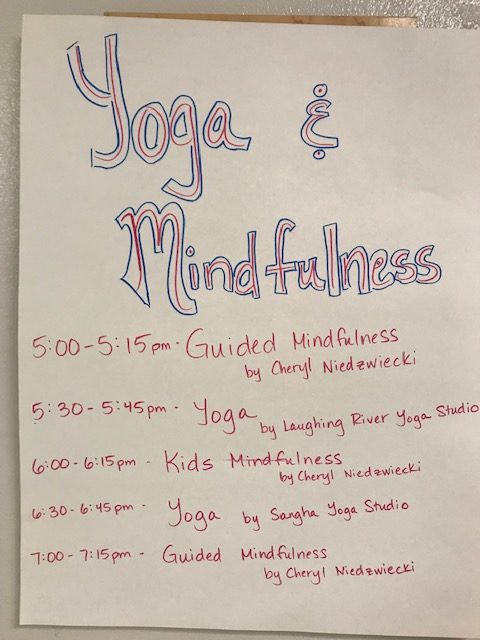 Yoga &
Mindfulness
5:00-5:15pm · Guided Mindfulness
by Cheryl Niedzwiecki
5:30-5:45pm - Yoga by Laughing River Yoga Studio
6:00-6:15pm - Kids Mindfulness
by Cheryl Niedzwiecki
6:30-6:45pm - Yoga by Sangha Yoga Studio
7:00-7:15pm - Guided Mindfulness
by Cheryl Niedzwiecki